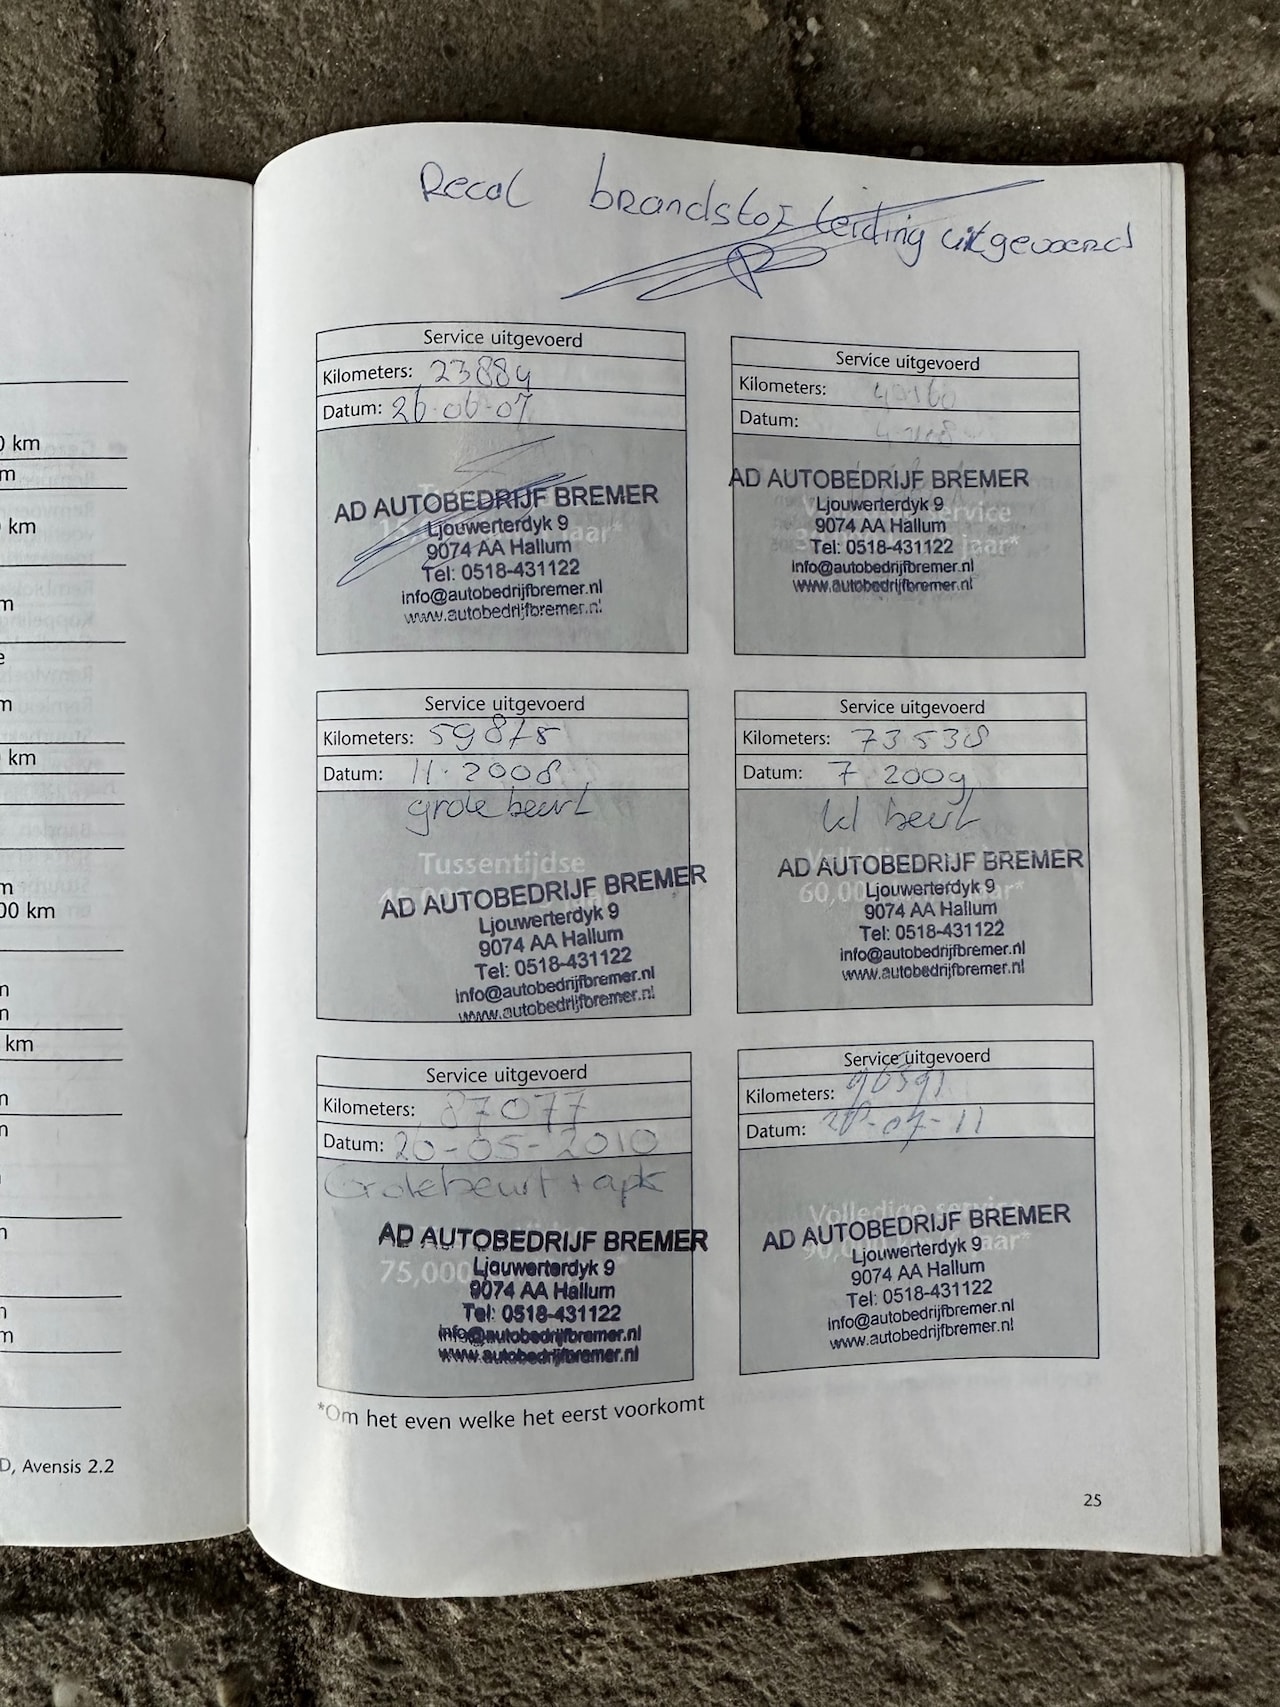 Recol brandstof leiding uitgevoerd
Service uitgevoerd
Kilometers: 23884
Datum: 26-06-07
AD AUTOBEDRIJF BREMER
Ljouwerterdyk 9
9074 AA Hallum
Tel: 0518-431122
info@autobedrijfbremer.nl
www.autobedrijfbremer.nl
Service uitgevoerd
Kilometers: 40160
Datum:
AD AUTOBEDRIJF BREMER
Ljouwerterdyk 9
9074 AA Hallum
Tel: 0518-431122
info@autobedrijfbremer.nl
www.autobedrijfbremer.nl
Service uitgevoerd
Kilometers: 59878
Datum: 11-2008
grote beurt
Tussentijdse
AD AUTOBEDRIJF BREMER
Ljouwerterdyk 9
9074 AA Hallum
Tel: 0518-431122
info@autobedrijfbremer.nl
www.autobedrijfbremer.nl
Service uitgevoerd
Kilometers: 73538
Datum: 7 2009
kl beurt
AD AUTOBEDRIJF BREMER
60,000 jaar*
Ljouwerterdyk 9
9074 AA Hallum
Tel: 0518-431122
info@autobedrijfbremer.nl
www.autobedrijfbremer.nl
Service uitgevoerd
Kilometers: 87077
Datum: 20-05-2010
Grote beurt + apk
AD AUTOBEDRIJF BREMER
75,000
Ljouwerterdyk 9
9074 AA Hallum
Tel: 0518-431122
info@autobedrijfbremer.nl
www.autobedrijfbremer.nl
Service uitgevoerd
Kilometers: 96591
Datum: -07-11
Volledige service
90,000 jaar*
AD AUTOBEDRIJF BREMER
Ljouwerterdyk 9
9074 AA Hallum
Tel: 0518-431122
info@autobedrijfbremer.nl
www.autobedrijfbremer.nl
*Om het even welke het eerst voorkomt
25
0 km
m
km
m
e
m
km
m
00 km
n
n
km
n
n
n
n
m
D, Avensis 2.2